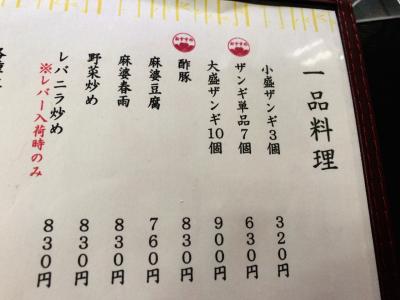 一品料理
小盛ザンギ3個 320円
おすすめ
ザンギ単品7個 630円
大盛ザンギ10個 900円
おすすめ
酢豚 830円
麻婆豆腐 760円
麻婆春雨 830円
野菜炒め 830円
レバニラ炒め 830円
※レバー入荷時のみ